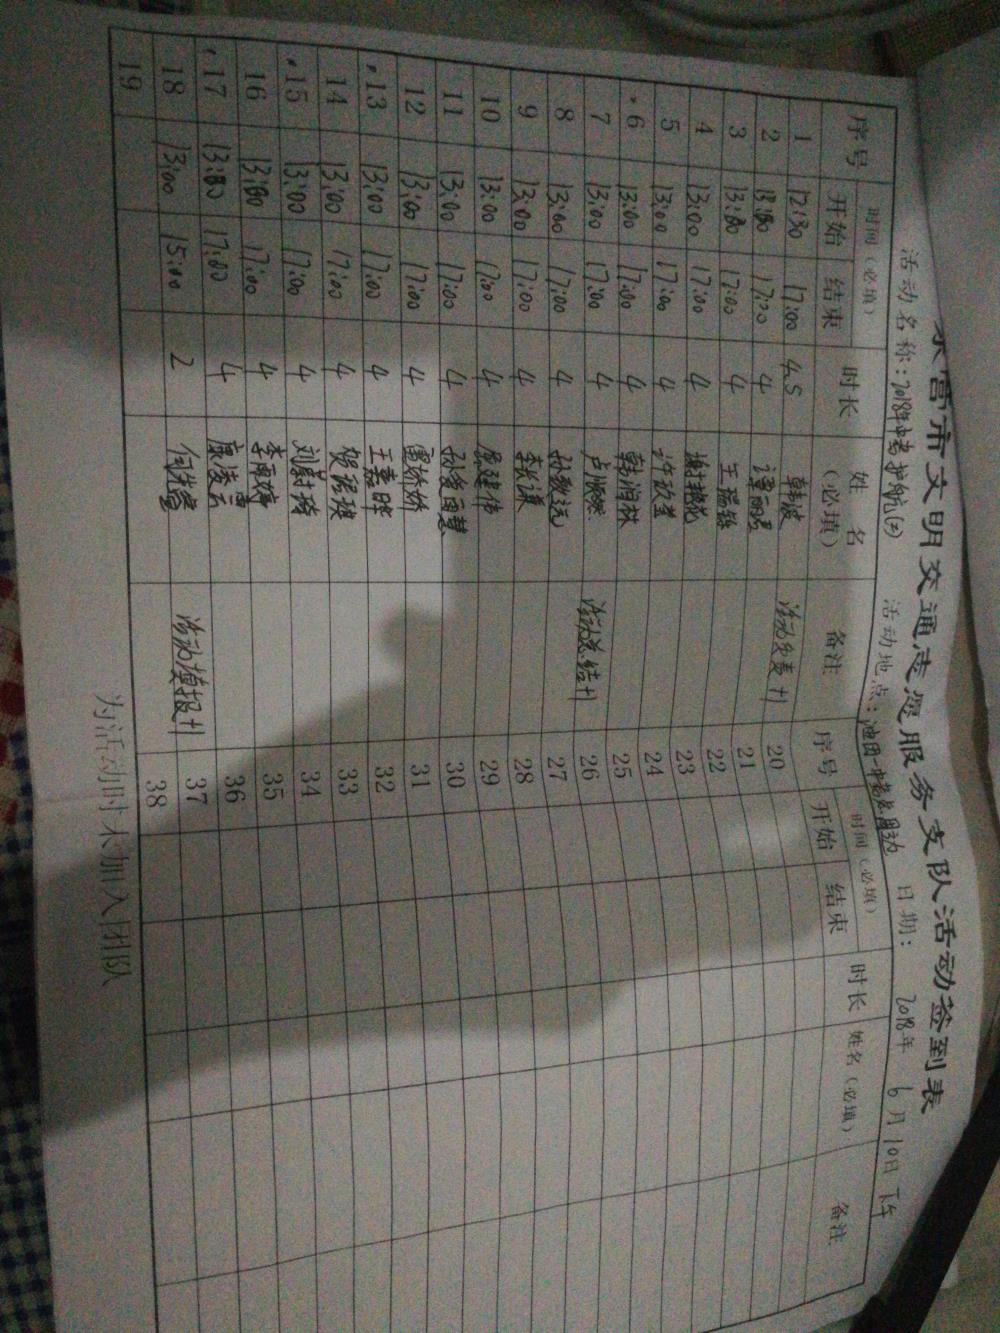 营市文明交通志愿服务支队活动签到表
活动名称：2018年中考护航(2) 活动地点：油田一中考点周边 日期： 2018年 6月10日 下午
序号 时间（必填） 时长 姓名（必填） 备注 序号 时间（必填） 时长 姓名（必填） 备注
开始 结束 开始 结束
1 12:30 17:00 4.5 韩波 活动负责+1 20
2 17:00 4 谭丽 21
3 17:00 4 王瑞 22
4 13:00 17:00 4 谢艳 23
5 13:00 17:00 4 许玖 24
·6 13:00 17:00 4 韩润林 25
7 13:00 17:00 4 卢 活动总结+1 26
8 13:00 17:00 4 孙 远 27
9 13:00 17:00 4 李 28
10 13:00 17:00 4 建伟 29
11 13:00 17:00 4 孙 慧 30
12 13:00 17:00 4 雷娇娇 31
·13 13:00 17:00 4 王嘉晖 32
14 13:00 17:00 4 贺 33
·15 13:00 17:00 4 刘蔚琦 34
16 17:00 4 李雨 35
·17 17:00 4 康凌云 36
18 13:00 15:00 2 何 活动填报+1 37
19 38
为活动时未加入团队